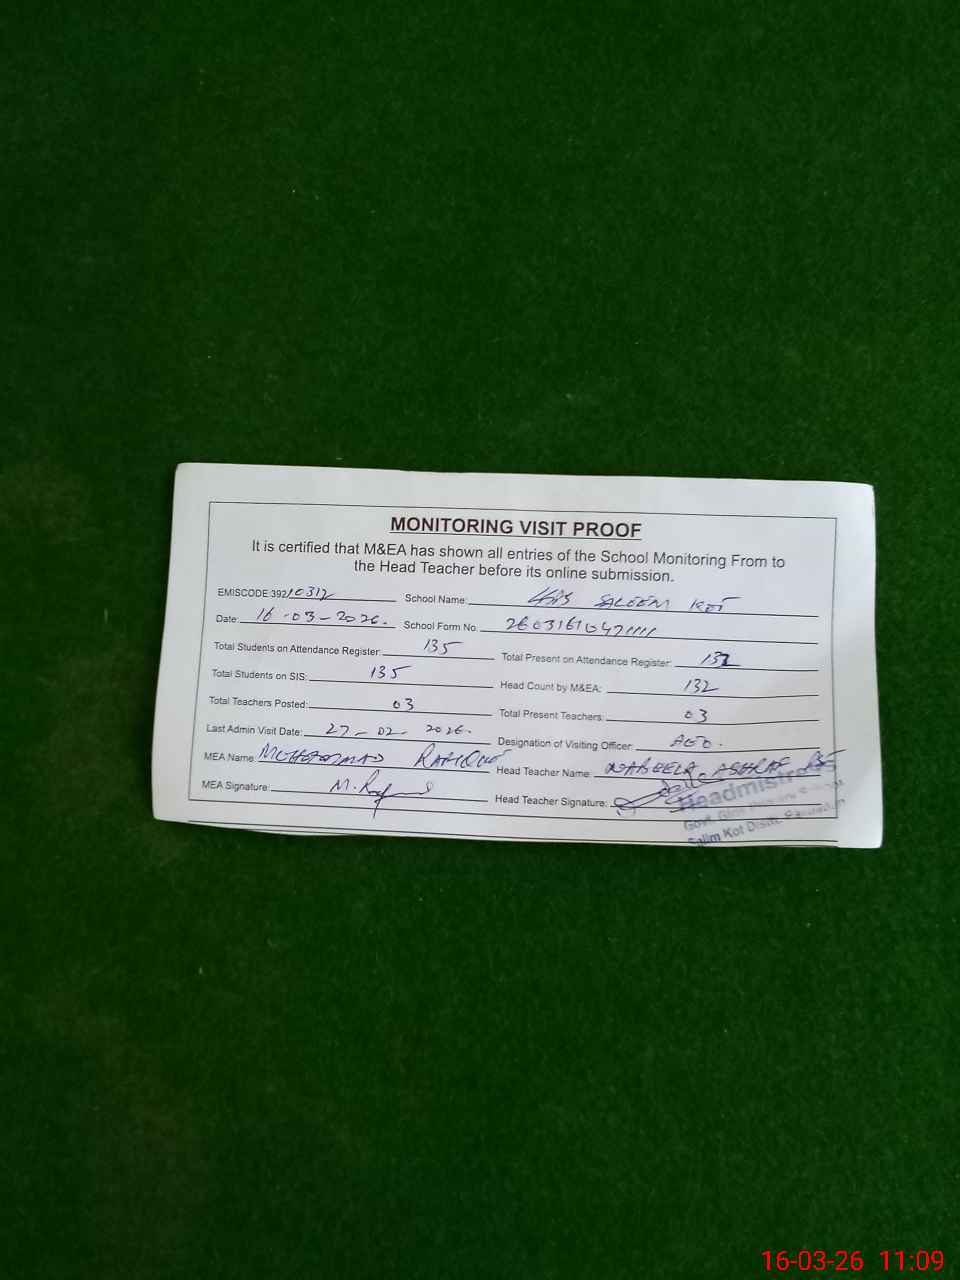 MONITORING VISIT PROOF
It is certified that M&EA has shown all entries of the School Monitoring From to
the Head Teacher before its online submission.
EMISCODE 39210312 School Name: SALEEM KOT
Date: 16-03-2026. School Form No.
Total Students on Attendance Register: 135 Total Present on Attendance Register: 132
Total Students on SIS: 135 Head Count by M&EA: 132
Total Teachers Posted: 03 Total Present Teachers: 03
Last Admin Visit Date: 27-02-2026. Designation of Visiting Officer: AEO.
MEA Name: MUHAMMAD Head Teacher Name: NABEELA ASHRAF
MEA Signature: Head Teacher Signature:
Headmistress
Govt. Girls Primary School
Salim Kot Distt.
16-03-26 11:09